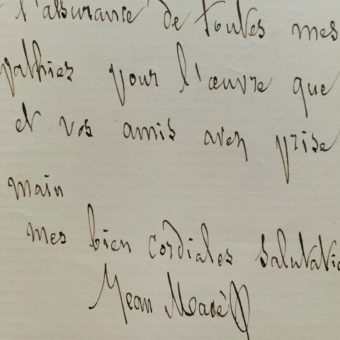 l'assurance de toutes mes
pathies pour l'œuvre que
et vos amis avez prise
main
mes bien cordiales salutatio
Jean Macé